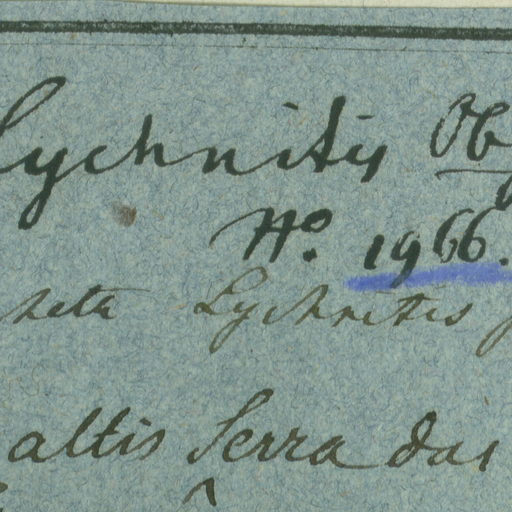 Lychnitis
No. 1966.
Lychnitis
altis Serra das